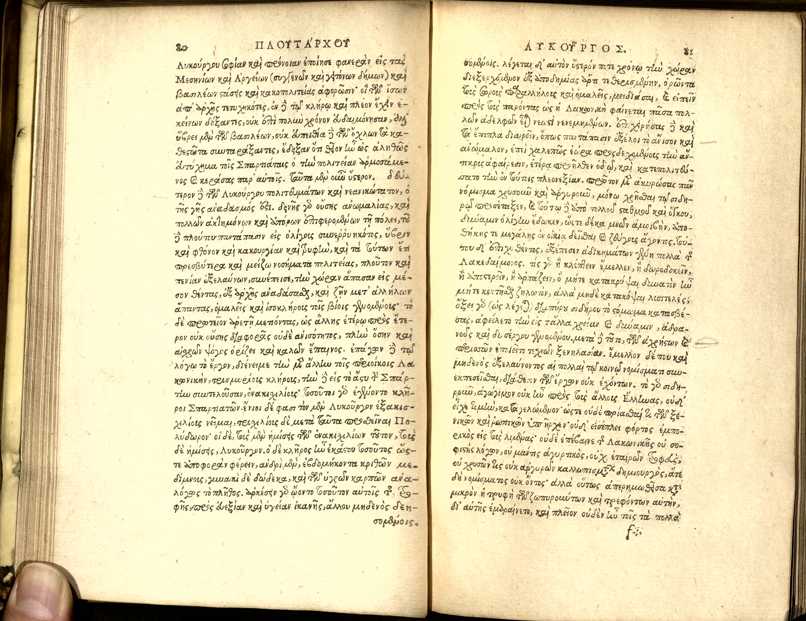 80 ΠΛΟΥΤΑΡΧΟΥ
Λυκούργου σοφίαν καὶ πρόνοιαν ἐποίησε φανερὰν εἰς τὰς
Μεσηνίων καὶ Ἀργείων (συγγενῶν καὶ γειτόνων δήμων) καὶ
βασιλέων στάσεις καὶ κακοπολιτείας ἀφορῶσιν· οἳ τῶν ἴσων
ἀπ' ἀρχῆς τετυχηκότες, ἐν δὲ τῷ κλήρῳ καὶ πλέον ἔχειν ἐ-
κείνων δόξαντες, οὐκ ἐπὶ πολὺν χρόνον εὐδαιμόνησαν, ἀλλ'
ὕβρει μὲν τῶν βασιλέων, οὐκ εὐπειθείᾳ δὲ τῶν ὄχλων τὰ κα-
θεστῶτα συνταράξαντες, ἔδειξαν ὅτι θεῖον ἦν ὡς ἀληθῶς
εὐτύχημα τοῖς Σπαρτιάταις ὁ τὴν πολιτείαν ἁρμοσάμε-
νος καὶ κεράσας παρ' αὐτοῖς. ταῦτα μὲν οὖν ὕστερον. δεύ-
τερον δὲ τῶν Λυκούργου πολιτευμάτων καὶ νεανικώτατον, ὁ
τῆς γῆς ἀναδασμός ἐστι. δεινῆς γὰρ οὔσης ἀνωμαλίας, καὶ
πολλῶν ἀκτημόνων καὶ ἀπόρων ἐπιφερομένων τῇ πόλει, τοῦ
δὲ πλούτου παντάπασιν εἰς ὀλίγους συνερρυηκότος, ὕβριν
καὶ φθόνον καὶ κακουργίαν καὶ τρυφὴν, καὶ τὰ τούτων ἔτι
πρεσβύτερα καὶ μείζω νοσήματα πολιτείας, πλοῦτον καὶ
πενίαν ἐξελαύνων, συνέπεισε, τὴν χώραν ἅπασαν εἰς μέ-
σον θέντας, ἐξ ἀρχῆς ἀναδάσασθαι, καὶ ζῆν μετ' ἀλλήλων
ἅπαντας, ὁμαλεῖς καὶ ἰσοκλήρους τοῖς βίοις γενομένους· τὸ
δὲ πρωτεῖον ἀρετῇ μετιόντας, ὡς ἄλλης ἑτέρῳ πρὸς ἕτε-
ρον οὐκ οὔσης διαφορᾶς οὐδὲ ἀνισότητος, πλὴν ὅσην καὶ
αἰσχρῶν ψόγος ὁρίζει καὶ καλῶν ἔπαινος. ἐπάγων δὲ τῷ
λόγῳ τὸ ἔργον, διένειμε τὴν μὲν ἄλλην τοῖς περιοίκοις Λα-
κωνικὴν, τρισμυρίους κλήρους, τὴν δὲ εἰς τὸ ἄστυ τὴν Σπάρ-
την συντελοῦσαν, ἐνακισχιλίους· τοσοῦτοι γὰρ ἐγένοντο κλῆ-
ροι Σπαρτιατῶν. ἔνιοι δέ φασι τὸν μὲν Λυκοῦργον ἑξακισ-
χιλίους νεῖμαι, τρισχιλίους δὲ μετὰ ταῦτα προσθεῖναι Πο-
λύδωρον· οἱ δὲ, τοὺς μὲν ἡμίσεις τῶν ἐνακισχιλίων τοῦτον, τοὺς
δὲ ἡμίσεις, Λυκοῦργον. ὁ δὲ κλῆρος ἦν ἑκάστου τοσοῦτος ὥς-
τε ἀποφορὰν φέρειν, ἀνδρὶ μὲν, ἑβδομήκοντα κριθῶν με-
δίμνους, γυναικὶ δὲ δώδεκα, καὶ τῶν ὑγρῶν καρπῶν ἀνα-
λόγως τὸ πλῆθος. ἀρκέσειν γὰρ ᾤοντο τοσοῦτον αὐτοῖς τῆς τρο-
φῆς πρὸς εὐεξίαν καὶ ὑγείαν ἱκανῆς, ἄλλου μηδενὸς δεη-
σομένοις.
ΛΥΚΟΥΡΓΟΣ. 81
σομένοις. λέγεται δὲ αὐτὸν ὕστερόν ποτε χρόνῳ τὴν χώραν
διερχόμενον ἐξ ἀποδημίας ἄρτι τεθερισμένην, ὁρῶντα
τοὺς σωροὺς παραλλήλους καὶ ὁμαλεῖς, μειδιᾶσαι, καὶ εἰπεῖν
πρὸς τοὺς παρόντας ὡς ἡ Λακωνικὴ φαίνεται πᾶσα πολ-
λῶν ἀδελφῶν εἶναι νεωστὶ νενεμημένων. ἐπιχειρήσας δὲ καὶ
τὰ ἔπιπλα διαιρεῖν, ὅπως παντάπασιν ἐξέλοι τὸ ἄνισον καὶ
ἀνώμαλον, ἐπεὶ χαλεπῶς ἑώρα προσδεχομένους τὴν ἄν-
τικρυς ἀφαίρεσιν, ἑτέρᾳ περιῆλθεν ὁδῷ, καὶ κατεπολιτεύ-
σατο τὴν ἐν τούτοις πλεονεξίαν. πρῶτον μὲν ἀκυρώσας πᾶν
νόμισμα χρυσοῦν καὶ ἀργυροῦν, μόνῳ χρῆσθαι τῷ σιδη-
ρῷ προσέταξεν, καὶ τούτῳ δὲ ἀπὸ πολλοῦ σταθμοῦ καὶ ὄγκου,
δύναμιν ὀλίγην ἔδωκεν, ὥστε δέκα μνῶν ἀμοιβὴν, ἀπο-
θήκης τε μεγάλης ἐν οἰκίᾳ δεῖσθαι καὶ ζεύγους ἄγοντος. τού-
του δὲ κυρωθέντος, ἐξέπεσεν ἀδικημάτων γένη πολλὰ τῆς
Λακεδαίμονος. τίς γὰρ ἢ κλέπτειν ἔμελλεν, ἢ δωροδοκεῖν,
ἢ ἀποστερεῖν, ἢ ἁρπάζειν, ὃ μήτε κατακρύψαι δυνατὸν ἦν
μήτε κεκτῆσθαι ζηλωτὸν, ἀλλὰ μηδὲ κατακόψαι λυσιτελές;
ὄξει γὰρ (ὡς λέγεται) διαπύρου σιδήρου τὸ στόμωμα κατασβέ-
σας, ἀφείλετο τὴν εἰς τἄλλα χρείαν καὶ δύναμιν, ἀδρα-
νοῦς καὶ δυσέργου γενομένου. μετὰ δὲ τοῦτο, τῶν ἀχρήστων καὶ
περισσῶν ἐποιεῖτο τεχνῶν ξενηλασίαν. ἔμελλον δέ που καὶ
μηδενὸς ἐξελαύνοντος αἱ πολλαὶ τῷ κοινῷ νομίσματι συν-
εκπεσεῖσθαι, διάθεσιν τῶν ἔργων οὐκ ἐχόντων. τὸ γὰρ σιδη-
ροῦν, ἀγώγιμον οὐκ ἦν πρὸς τοὺς ἄλλους Ἕλληνας, οὐδ'
εἶχε τιμὴν, καταγελώμενον· ὥστε οὐδὲ πρίασθαί τι τῶν ξε-
νικῶν καὶ ῥωπικῶν ὑπῆρχεν· οὐδ' εἰσέπλει φόρτος ἐμπο-
ρικὸς εἰς τοὺς λιμένας· οὐδὲ ἐπέβαινε τῆς Λακωνικῆς οὐ σο-
φιστὴς λόγων, οὐ μάντις ἀγυρτικὸς, οὐχ ἑταιρῶν τροφεὺς,
οὐ χρυσῶν τις οὐκ ἀργυρῶν καλλωπισμάτων δημιουργὸς, ἅτε
δὴ νομίσματος οὐκ ὄντος· ἀλλ' οὕτως ἀπερημωθεῖσα κατὰ
μικρὸν ἡ τρυφὴ τῶν ζωπυρούντων καὶ τρεφόντων αὐτὴν,
δι' αὑτῆς ἐμαραίνετο, καὶ πλεῖον οὐδὲν ἦν τοῖς τὰ πολλὰ